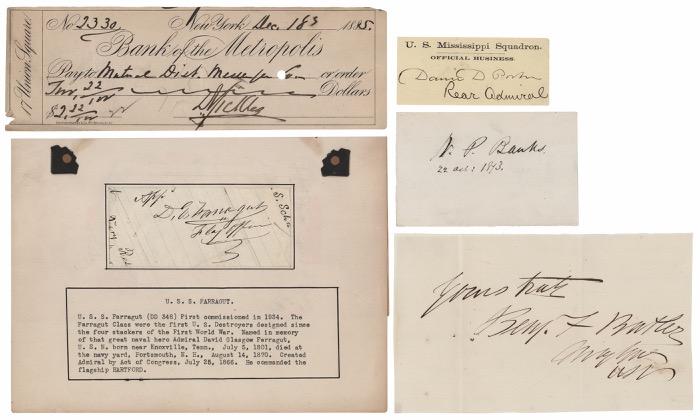 No 2330 New York Dec. 18 1885.
Bank of the Metropolis
17 Union Square
Pay to Mutual Dist. Messenger Co or order
Two 22/100 Dollars
$2 22/100
D Sickles
U. S. Mississippi Squadron.
OFFICIAL BUSINESS.
David D. Porter
Rear Admiral
N. P. Banks.
22 Oct: 1873.
Appd
D. G. Farragut
Flag Officer
U. S. S. FARRAGUT.
U. S. S. Farragut (DD 348) First commissioned in 1934. The
Farragut Class were the first U. S. Destroyers designed since
the four stackers of the First World War. Named in memory
of that great naval hero Admiral David Glasgow Ferragut,
U. S. N. born near Knoxville, Tenn., July 5, 1801, died at
the navy yard, Portsmouth, N. H., August 14, 1870. Created
Admiral by Act of Congress, July 25, 1866. He commanded the
flagship HARTFORD.
Yours truly
Benj. F Butler